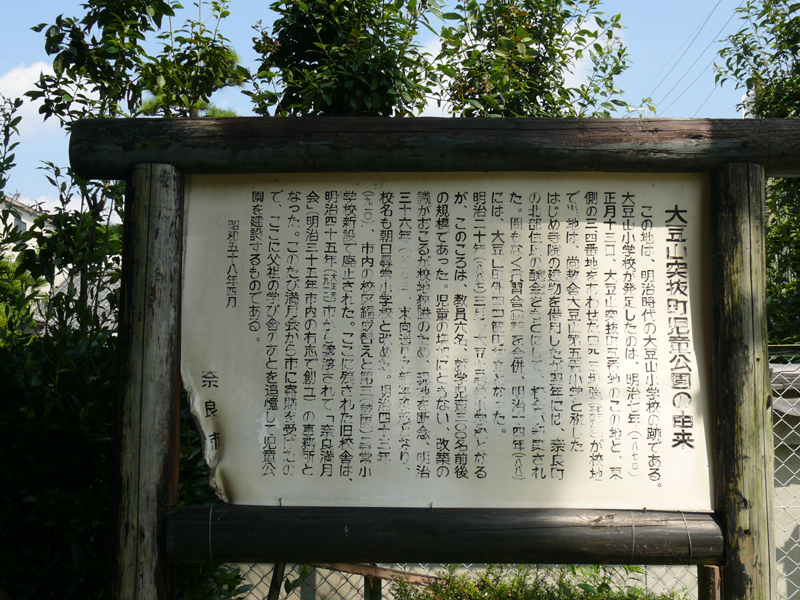 大豆山突抜町児童公園の由来
この地は、明治時代の大豆山小学校の跡である。
大豆山小学校が発足したのは、明治七年(一八七四)
正月十三日、大豆山突抜町 番地のこの地と、東
側の三四番地をあわせた が校地
で 地は、尚教会大豆山第五番小学と称した
はじめ寺院の建物を借用したが翌年には、奈良町
の北部住民の醵金をもとにして 新築され
た。間もなく 習舎 を合併、明治十四年(一八八一)
には、大豆山町外 となった。
明治二十年(一八八七)三月、大豆山 となる
が、このころは、教員六名、就学児童三〇〇名前後
の規模であった。児童の増加にともない、改築の
議がおこるが校地狭隘のため、現地を断念、明治
三十六年 、 末向 となり、
校名も朝日尋常小学校と改めた。明治四十三年
(一九一〇)、市内の校区編成替えと第三 尋常小
学校新設で廃止された。ここに残された旧校舎は、
明治四十五年 市から譲渡されて、「奈良満月
会」(明治三十五年市内の有志で創立)の事務所と
なった。このたび満月会から市に寄贈を受け の
で、ここに父祖の学び舎のあとを追憶して児童公
園を建設するものである。
昭和五十八年四月
奈良市